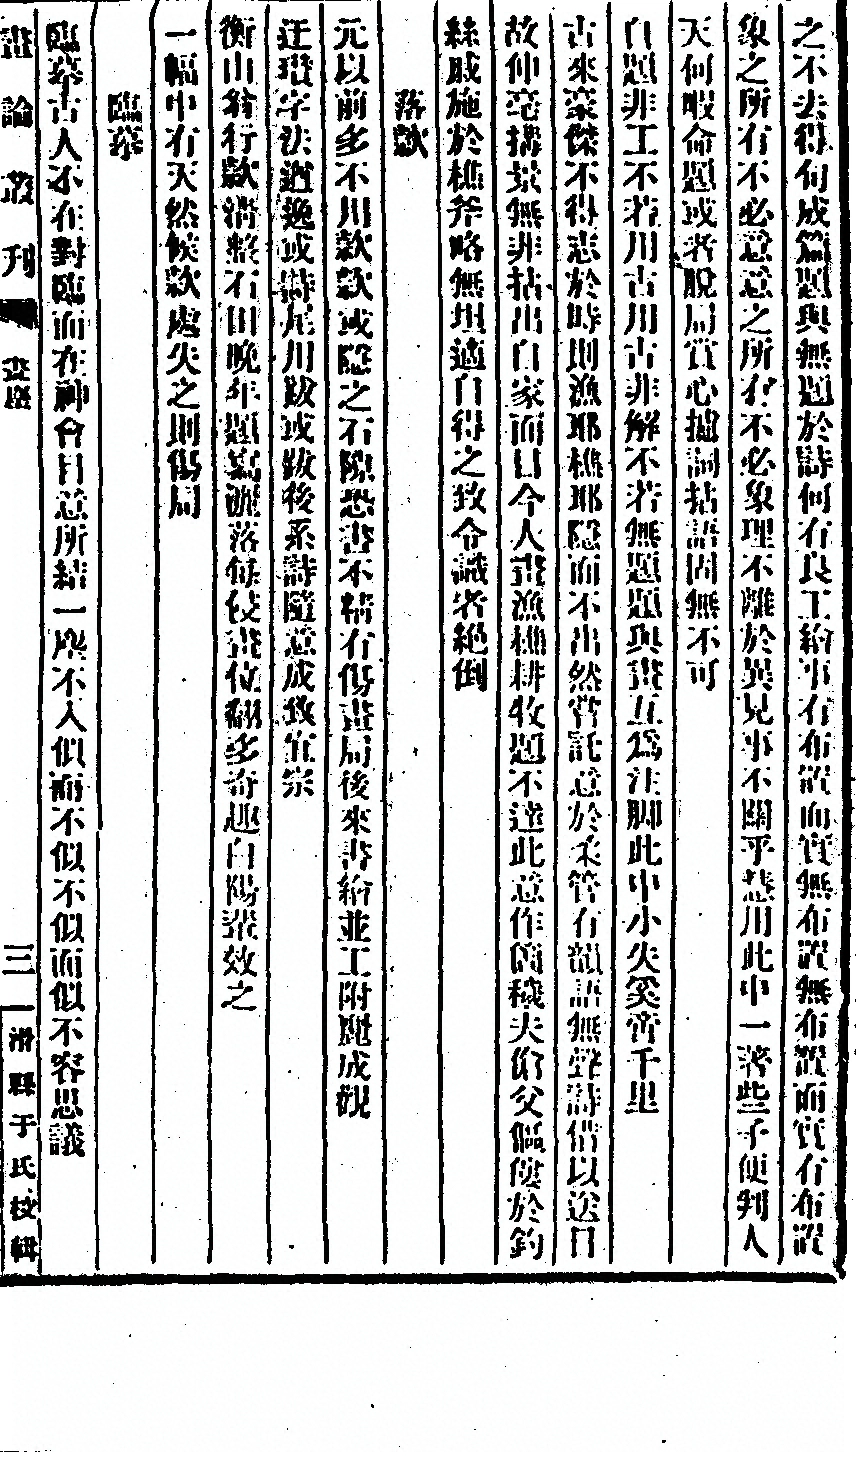 之不去得句成篇題與無題於詩何有良工繪事有布置而實無布置無布置而實有布置
象之所有不必意意之所有不必象理不離於異見事不關乎慧用此中一著些子便判人
天何暇命題或者脫局賞心摅詞拈語固無不可
自題非工不若用古用古非解不若無題題與畫互為注脚此中小失奚啻千里
古來豪傑不得志於時則漁耶樵耶隱而不出然嘗託意於柔管有韻語無聲詩借以送日
故伸毫搆景無非拈出自家面目今人畫漁樵耕牧題不達此意作箇穢夫傖父傴僂於釣
絲戚施於樵斧略無坦適自得之致令識者絕倒
落款
元以前多不用款款或隱之石隙恐書不精有傷畫局後來書繪並工附麗成觀
迂瓚字法遒逸或詩尾用跋或跋後系詩隨意成致宜宗
衡山翁行款清整石田晚年題寫灑落每侵畫位翻多奇趣白陽輩效之
一幅中有天然候款處失之則傷局
臨摹
臨摹古人不在對臨而在神會目意所結一塵不入似而不似不似而似不容思議
畫論叢刊 畫麈 三 滑縣于氏校輯